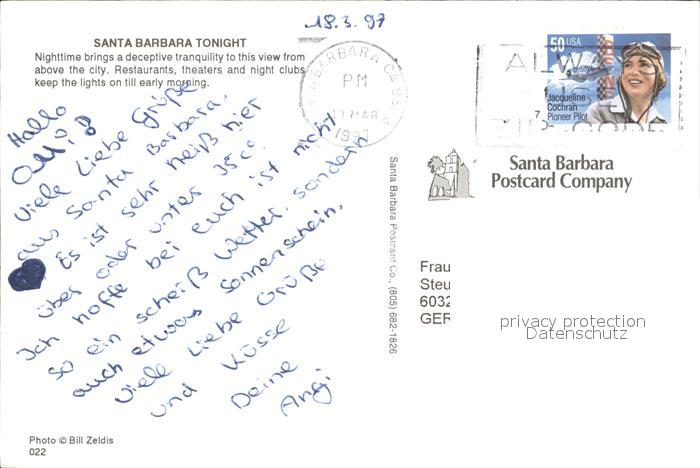 18.3.97
SANTA BARBARA TONIGHT
Nighttime brings a deceptive tranquility to this view from
above the city. Restaurants, theaters and night clubs
keep the lights on till early morning.
Hallo
Omi!
Viele Liebe Grüße
aus Santa Barbara.
Es ist sehr heiß hier
über oder unter 35 C.
Ich hoffe bei euch ist nicht
so ein scheiß Wetter. sondern
auch etwas Sonnenschein.
Viele Liebe Grüße
und Küsse
Deine
Angi
Photo © Bill Zeldis
022
Santa Barbara Postcard Co., (805) 682-1826
BARBARA CA 93
PM
MAR
1997
50 USA
Jacqueline
Cochran
Pioneer Pilot
ALWA
Santa Barbara
Postcard Company
Frau
Steu
6032
GER
privacy protection
Datenschutz